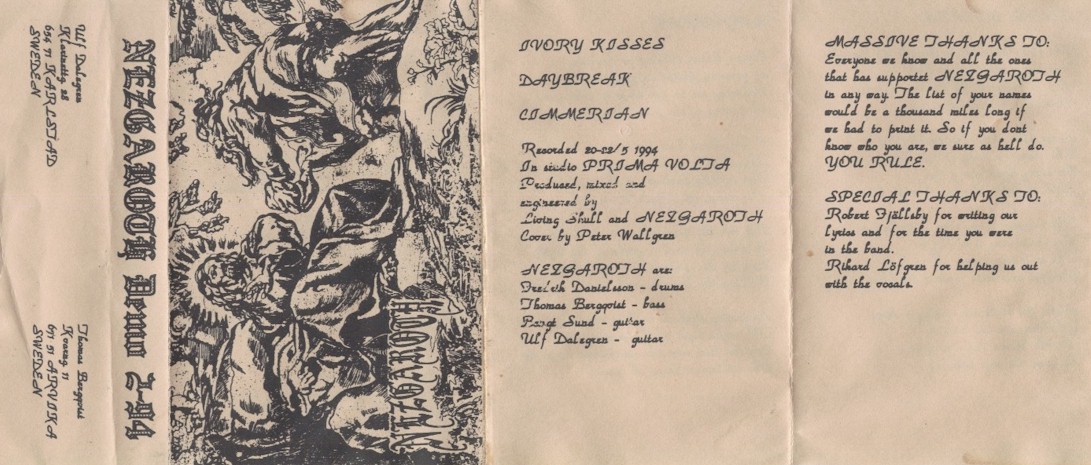 Ulf Dalegren
Klarinettg. 28
654 71 KARLSTAD
SWEDEN
Thomas Bergqvist
Kvarng. 11
671 51 ARVIKA
SWEDEN
NEZGAROTH Demo 2-94
NEZGAROTH
IVORY KISSES
DAYBREAK
CIMMERIAN
Recorded 20-22/5 1994
In studio PRIMA VOLTA
Produced, mixed and
engineered by
Living Skull and NEZGAROTH
Cover by Peter Wallgren
NEZGAROTH are:
Fredrik Danielsson - drums
Thomas Bergqvist - bass
Sund - guitar
Ulf Dalegren - guitar
MASSIVE THANKS TO:
Everyone we know and all the ones
that has supportet NEZGAROTH
in any way. The list of your names
would be a thousand miles long if
we had to print it. So if you dont
know who you are, we sure as hell do.
YOU RULE.
SPECIAL THANKS TO:
Robert Fjälleby for writing our
lyrics and for the time you were
in the band.
Rihard Löfgren for helping us out
with the vocals.